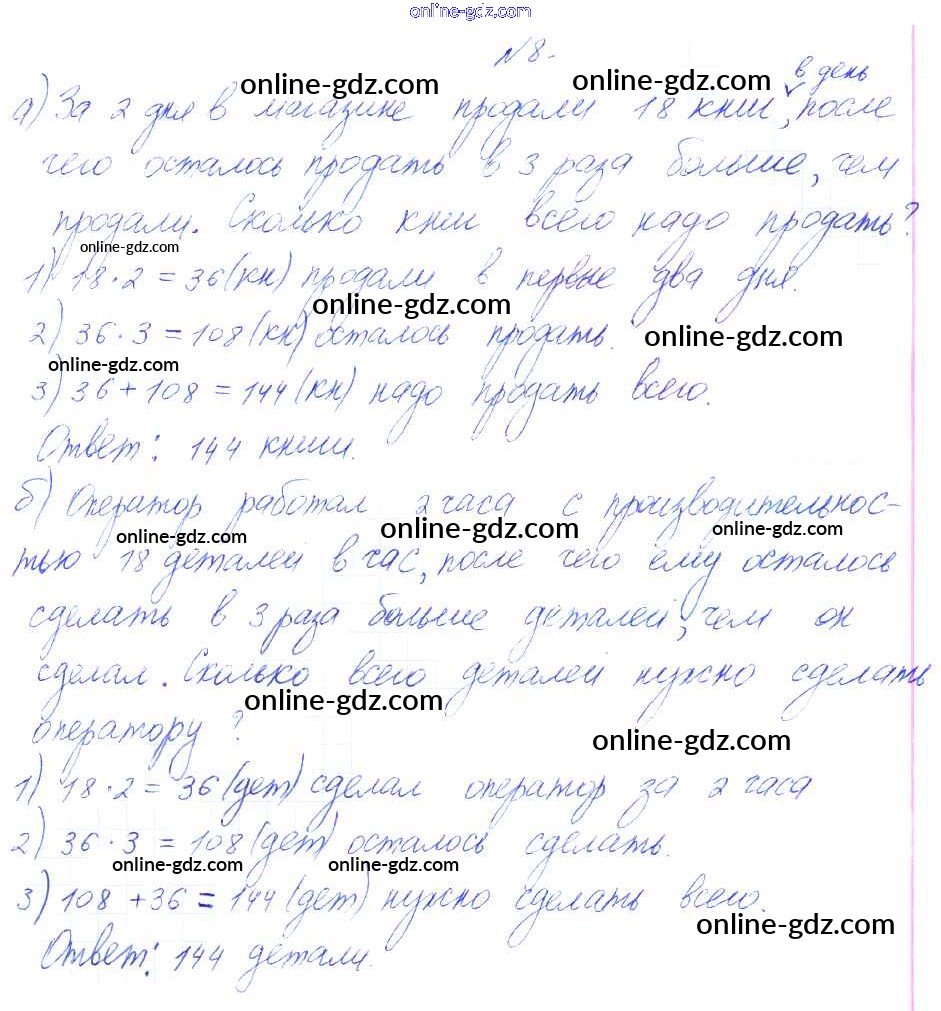 online-gdz.com
№8.
online-gdz.com online-gdz.com в день
а) За 2 дня в магазине продали 18 книг, после
чего осталось продать в 3 раза больше, чем
продали. Сколько книг всего надо продать?
online-gdz.com
1) 18·2 = 36(кн) продали в первые два дня.
online-gdz.com
2) 36·3 = 108(кн) осталось продать.
online-gdz.com
online-gdz.com
3) 36+108 = 144(кн) надо продать всего.
Ответ: 144 книги.
б) Оператор работал 2 часа с производительнос-
online-gdz.com online-gdz.com online-gdz.com
тью 18 деталей в час, после чего ему осталось
сделать в 3 раза больше деталей, чем он
сделал. Сколько всего деталей нужно сделать
online-gdz.com
оператору?
online-gdz.com
1) 18·2 = 36(дет) сделал оператор за 2 часа
2) 36·3 = 108(дет) осталось сделать.
online-gdz.com online-gdz.com
3) 108+36 = 144(дет) нужно сделать всего.
online-gdz.com
Ответ: 144 детали.